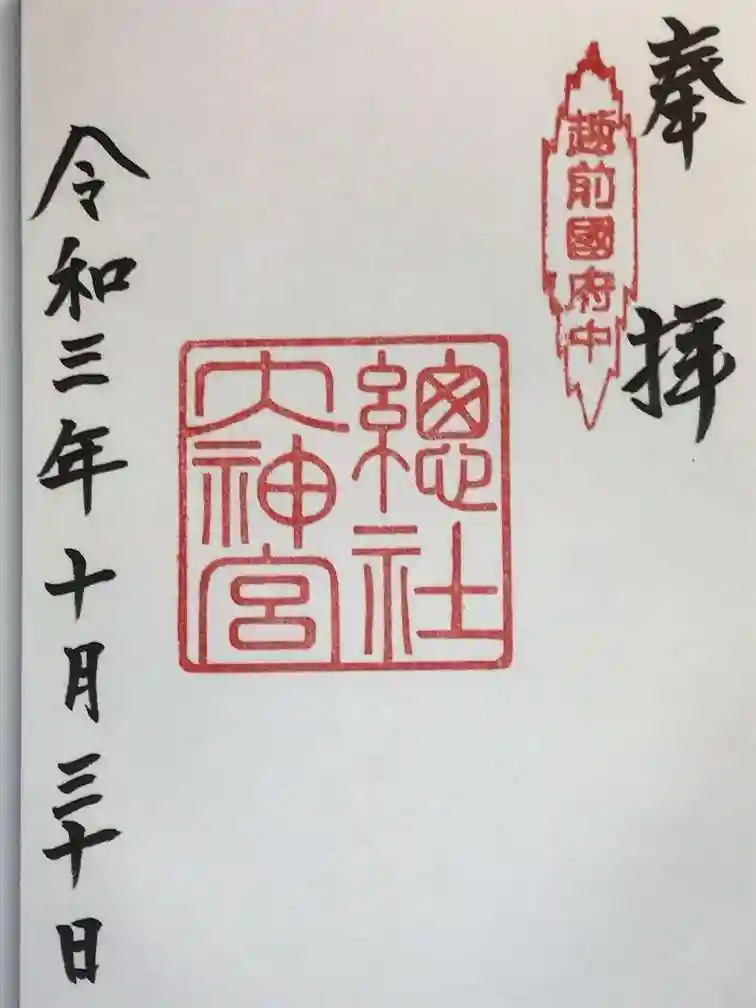 奉拝
越前國府中
總社
大神宮
令和三年十月三十日